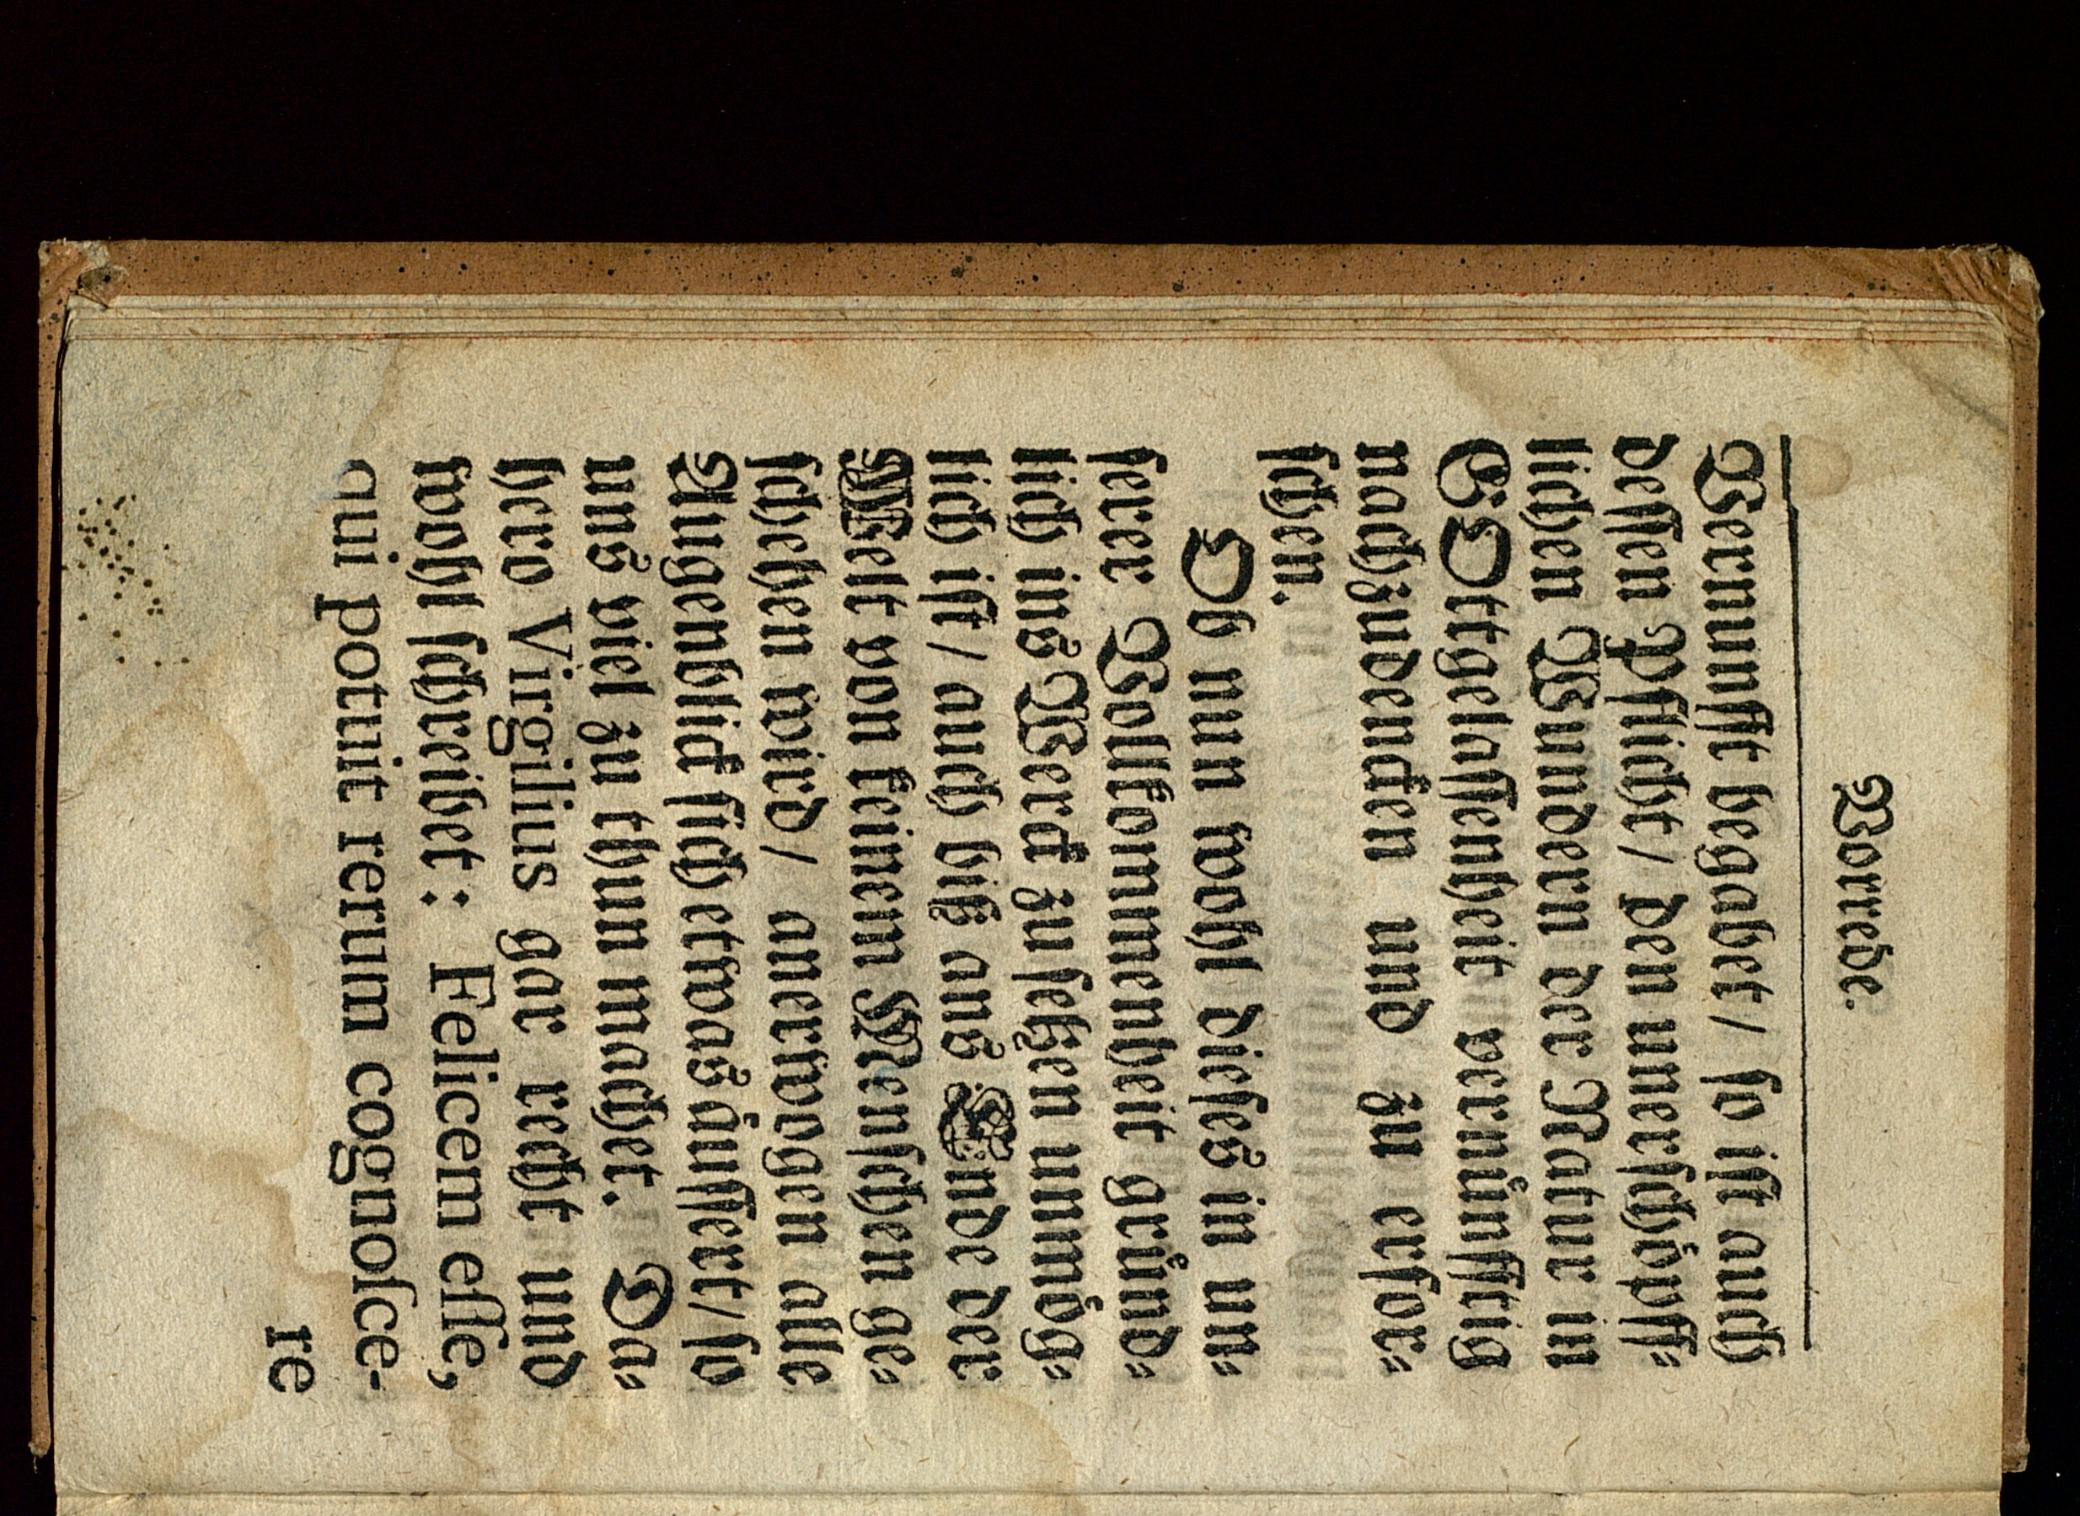 Vorrede.
Vernunfft begabet / so ist auch
dessen Pflicht / den unerschöpff-
lichen Wundern der Natur in
GOttgelassenheit vernünfftig
nachzudencken und zu erfor-
schen.
Ob nun wohl dieses in un-
serer Vollkommenheit gründ-
lich ins Werck zusetzen unmög-
lich ist / auch biß ans Ende der
Welt von keinem Menschen ge-
schehen wird / anerwogen alle
Augenblick sich etwas äussert / so
uns viel zu thun machet. Da-
hero Virgilius gar recht und
wohl schreibet: Felicem esse,
qui potuit rerum cognosce-
re